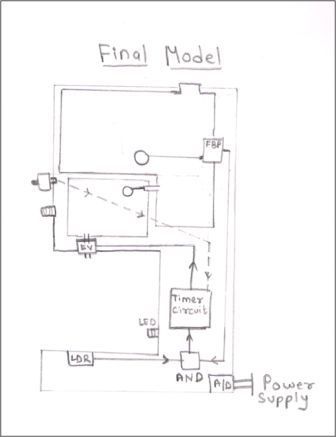 Final Model
FBP
EV
Timer
Circuit
LED
LDR
AND
A/D
Power
Supply